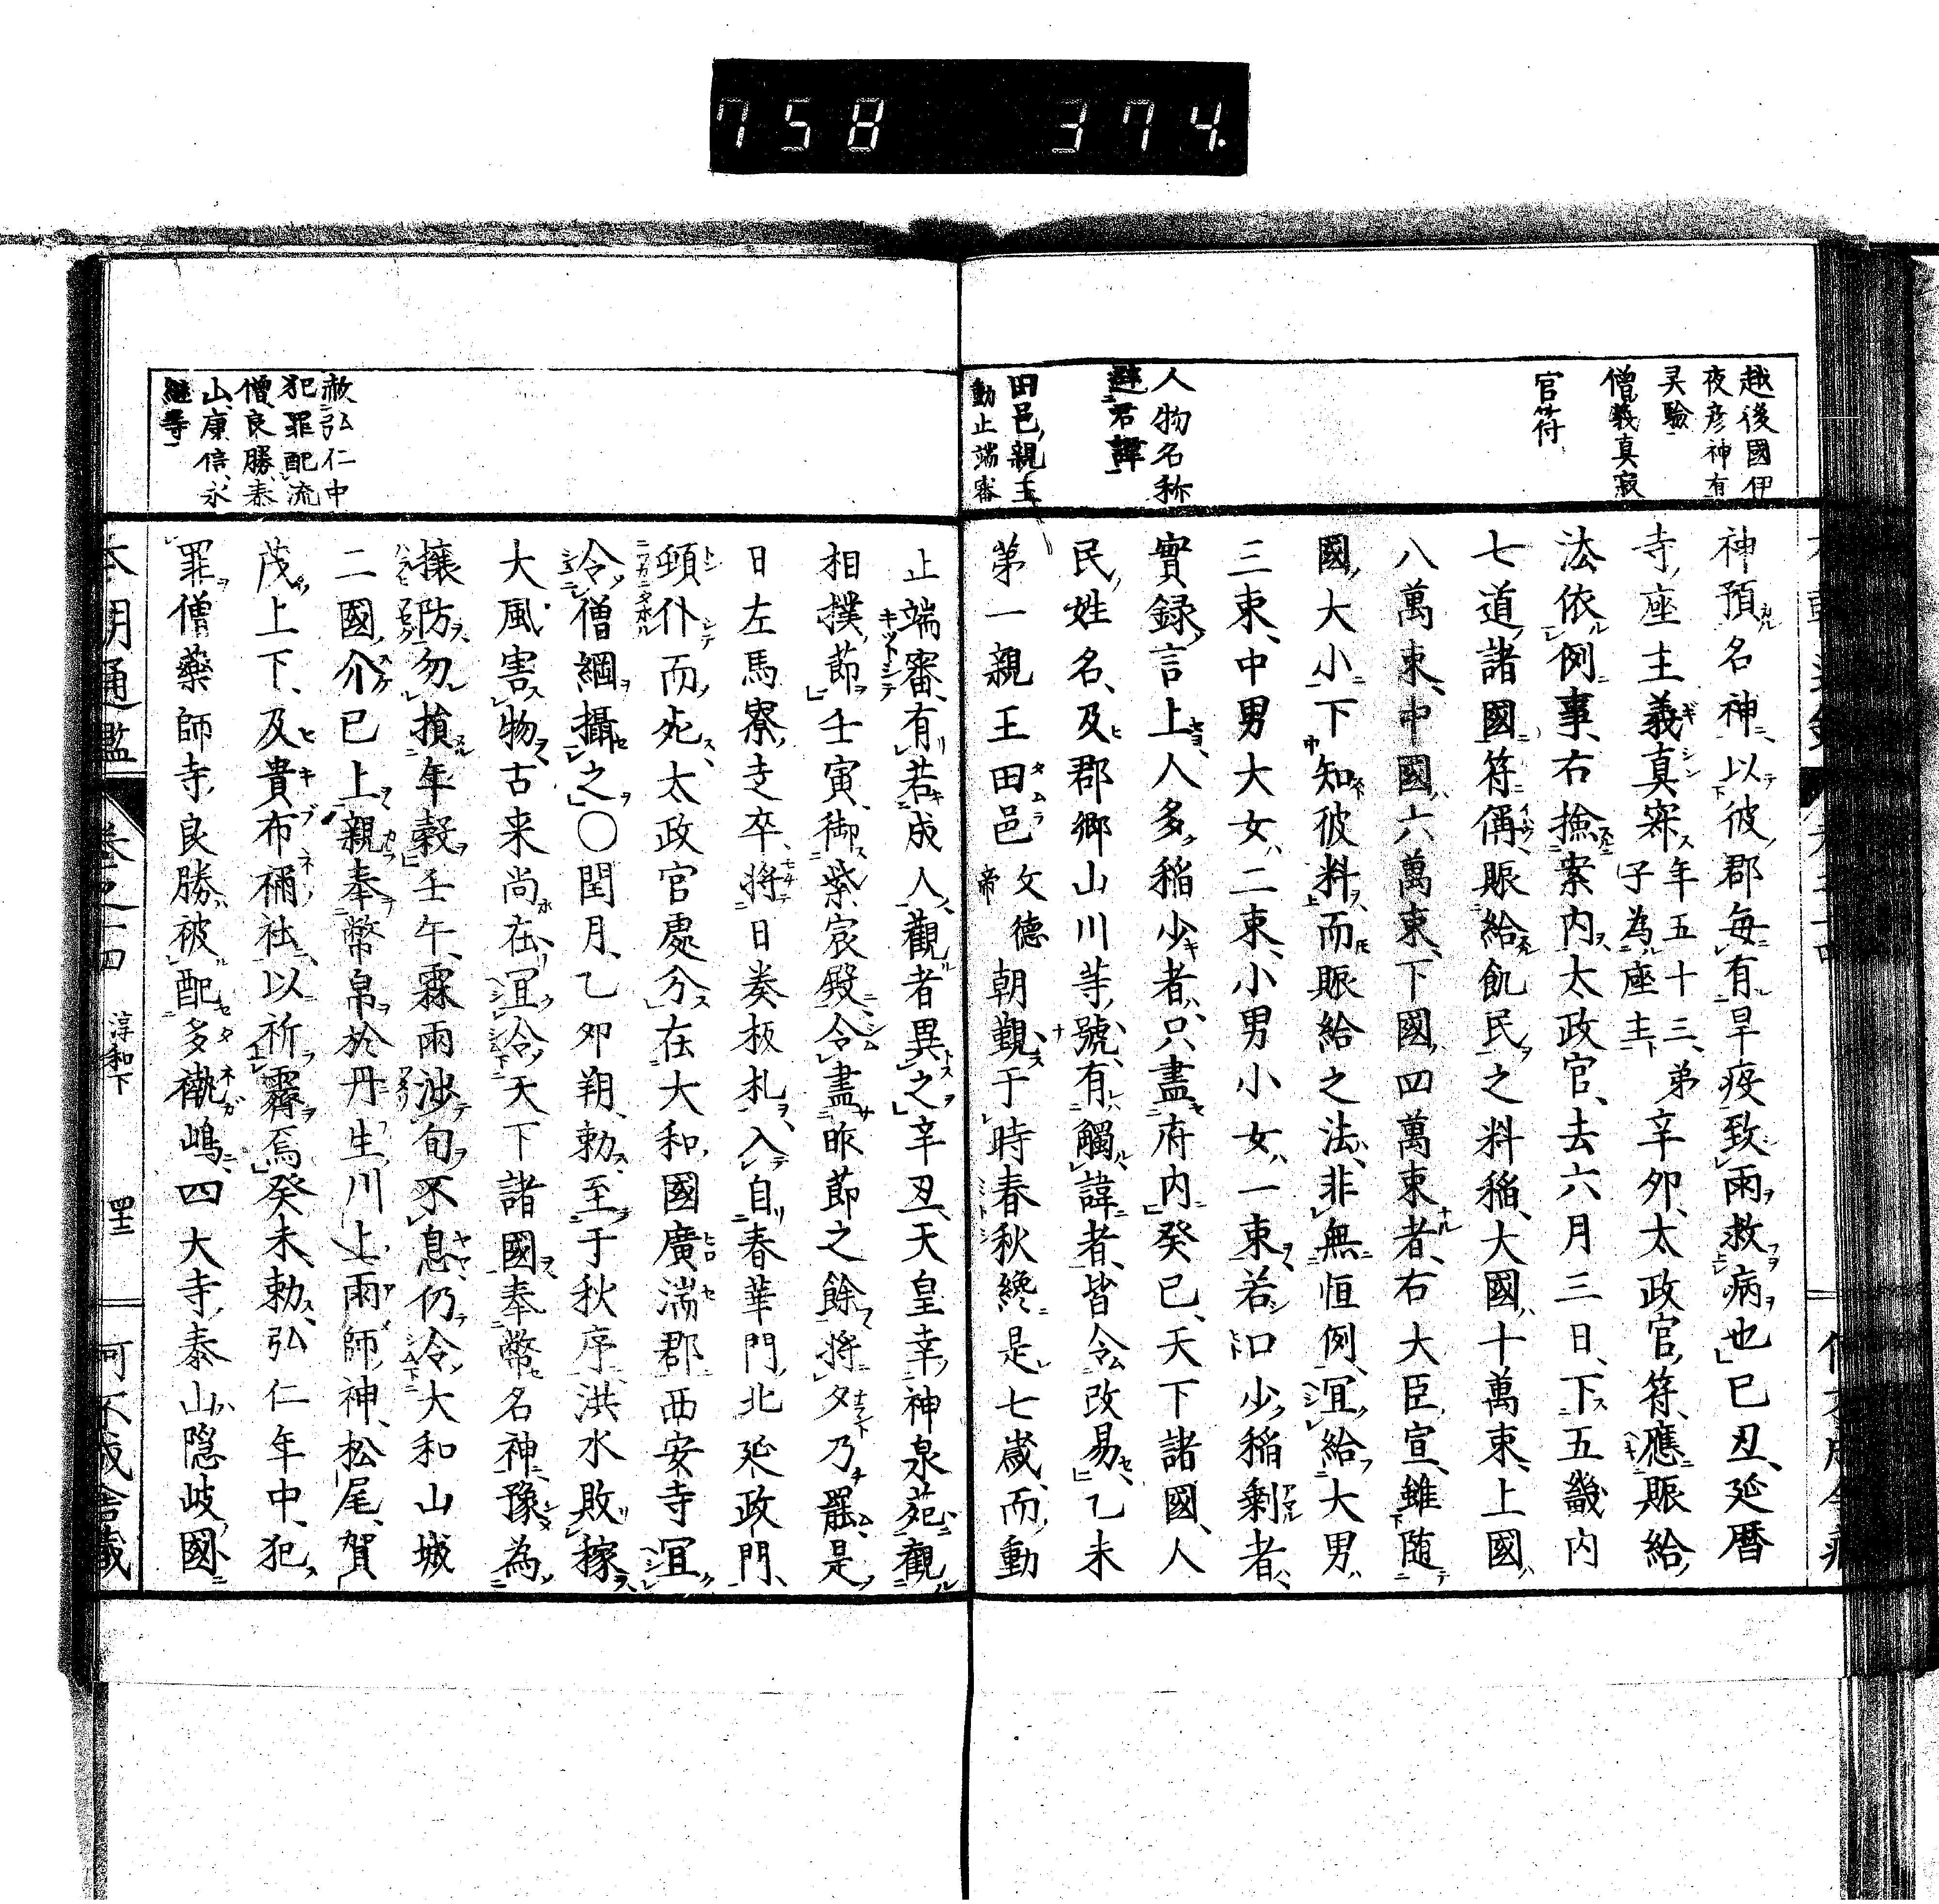 758 374.
越後國伊
夜彦神有
灵驗
僧義真寂
官符
人物名称
避君諱
田邑親王
動止端審
神預名神以彼郡毎有旱疫致雨救病也己丑延暦
寺座主義真寂年五十三弟子為座主辛卯太政官符應賑給
法依例事右撿案内太政官去六月三日下五畿内
七道諸國符偁賑給飢民之料稲大國十萬束上國
八萬束中國六萬束下國四萬束者右大臣宣雖随
國大小下知彼料而賑給之法非無恒例冝給大男
三束中男大女二束小男小女一束若口少稲剰者
實録言上人多稲少者只盡府内癸巳天下諸國人
民姓名及郡郷山川等號有觸諱者皆令改易乙未
第一親王田邑文德帝朝覲于時春秋纔是七歳而動
止端審有若成人觀者異之辛丑天皇幸神泉苑觀
相撲節壬寅御紫宸殿令盡昨節之餘將夕乃罷是
日左馬寮走卒將日奏板札入自春華門北延政門
頓仆而死太政官處分在大和國廣湍郡西安寺冝
令僧綱攝之〇閏月乙卯朔勅至于秋序洪水敗稼
大風害物古来尚在冝令天下諸國奉幣名神豫為
攘防勿損年穀壬午霖雨渉旬不息仍令大和山城
二國介已上親奉幣帛於丹生川上雨師神松尾賀
茂上下及貴布祢社以祈霽焉癸未勅弘仁年中犯
罪僧藥師寺良勝被配多褹嶋四大寺泰山隠岐國
赦弘仁中
犯罪配流
僧良勝泰
山康信永
継等
本朝通鑑 卷之十四 淳和下